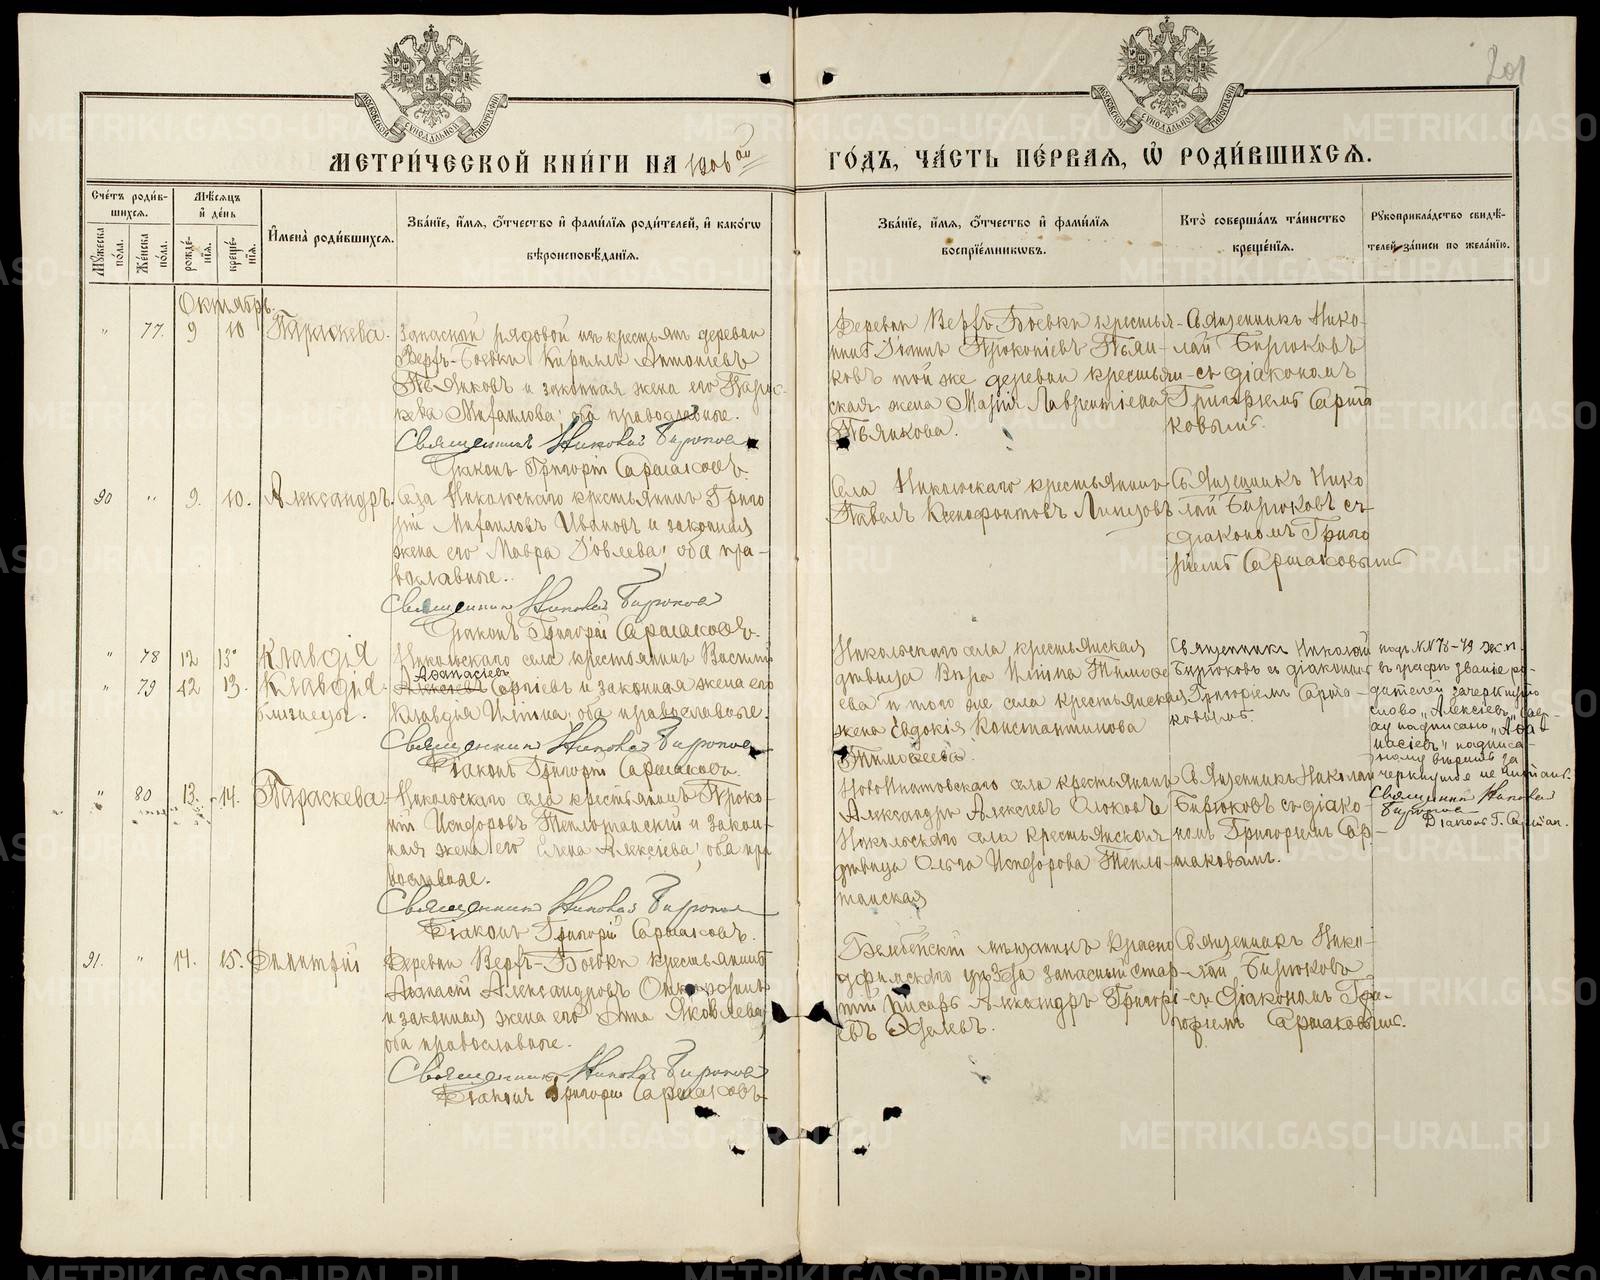 201
МЕТРИ́ЧЕСКОЙ КНИ́ГИ НА 1906ой ГО́ДЪ, ЧА́СТЬ ПЕ́РВАЯ, Ѿ РОДИ́ВШИХСЯ.
Сче́тъ роди́вшихся.
Мꙋ́жеска по́ла.
Же́нска по́ла.
Мѣ́сяцъ и҆ де́нь
рожде́нїя.
креще́нїя.
И҆мена̀ роди́вшихся.
Зва́нїе, и҆́мя, ѻ҆́тчество и҆ фами́лїя роди́телей, и҆ како́гѡ
вѣроисповѣ́данїя.
Зва́нїе, и҆́мя, ѻ҆́тчество и҆ фами́лїя
воспрїе́мникѡвъ.
Кто̀ соверша́лъ та́инство
креще́нїя.
Рꙋкоприкла́дство свидѣ́-
телей за́писи по жела́нїю.
Октябрь.
" 77. 9 10 Параскева.
Запасной рядовой изъ крестьянъ деревни
Верхъ-Боевки Кириллъ Антоніевъ
Пьянковъ и законная жена его Парас-
кева Михаилова; оба православные.
Священникъ Николай Бирюковъ
Діаконъ Григорій Сармаковъ.
Деревни Верхъ-Боевки крестья-
нинъ Прокопіевъ Пьян-
ковъ той же деревни крестьян-
ская жена Марія Лаврентіева
Пьянкова.
Священникъ Нико-
лай Бирюковъ
съ діакономъ
Григоріемъ Сарма
ковымъ.
90 " 9. 10. Александръ.
Села Никольскаго крестьянинъ Григо
рій Михаиловъ Ивановъ и законная
жена его Мавра Іовлева; оба пра-
вославные.
Священникъ Николай Бирюковъ
Діаконъ Григорій Сармаковъ.
Села Никольскаго крестьянинъ
Павелъ Ксенофонтовъ
Священникъ Нико
лай Бирюковъ съ
діакономъ Григо
ріемъ Сармаковымъ
" 78 12 13. Клавдія
" 79 12 13. Клавдія.
близнецы.
Никольскаго села крестьянинъ Василій
Аѳанасіевъ
Алексіевъ Сергіевъ и законная жена его
Клавдія Ильина; оба православные.
Священникъ Николай Бирюковъ
Діаконъ Григорій Сармаковъ.
Никольскаго села крестьянская
дѣвица Вѣра Ильина Тимоѳе
ева и того же села крестьянская
жена Евдокія Константинова
Тимоѳеева.
Священникъ Николай
Бирюковъ съ діакономъ
Григоріемъ Сарма-
ковымъ.
подъ № № 78-79 ж. п.
въ графѣ званіе ро-
дителей зачеркнуто
слово "Алексіевъ" свер-
ху надписано "Аѳа
насіевъ" надписа-
ному вѣрить за
черкнутое не читать.
Священникъ Николай
Бирюковъ
Діаконъ Г. Сармак.
" 80 13. 14. Параскева
Никольскаго села крестьянинъ Проко-
пій Исидоровъ Теплоганскій и закон-
ная жена его Елена Алексіева; оба пра
вославные.
Священникъ Николай Бирюковъ
Діаконъ Григорій Сармаковъ.
Александръ Алексіевъ
Никольскаго села крестьянская
дѣвица Ольга Исидорова Тепло-
ганская
Священникъ Николай
Бирюковъ съ діако-
номъ Григоріемъ Сар-
маковымъ.
91. " 14. 15. Димитрій
Деревни Верхъ-Боевки крестьянинъ
Аѳанасій Александровъ
и законная жена его Анна Яковлева;
оба православные.
Священникъ Николай Бирюковъ
Діаконъ Григорій Сармаковъ.
мѣщанинъ Красно
уфимскаго уѣзда запасный стар-
шій писарь Александръ Григорі-
евъ
Священникъ Нико-
лай Бирюковъ
съ діакономъ Гри-
горіемъ Сармаковымъ.